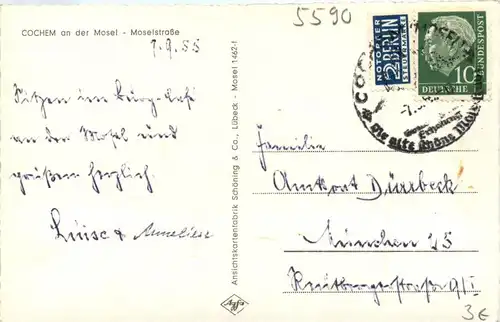 5590
COCHEM an der Mosel - Moselstraße
1.9.55
Sitzen im Burg-Café
an der Mosel und
grüßen herzlich
Luise & Anneliese
Ansichtskartenfabrik Schöning & Co., Lübeck - Mosel 1462-1
Agfa
NOTOPFER
2 BERLIN
STEUERMARKE
DEUTSCHE BUNDESPOST
10
COCHEM
die alte schöne Mosel
Familie
Dürrbeck
München 25
3€